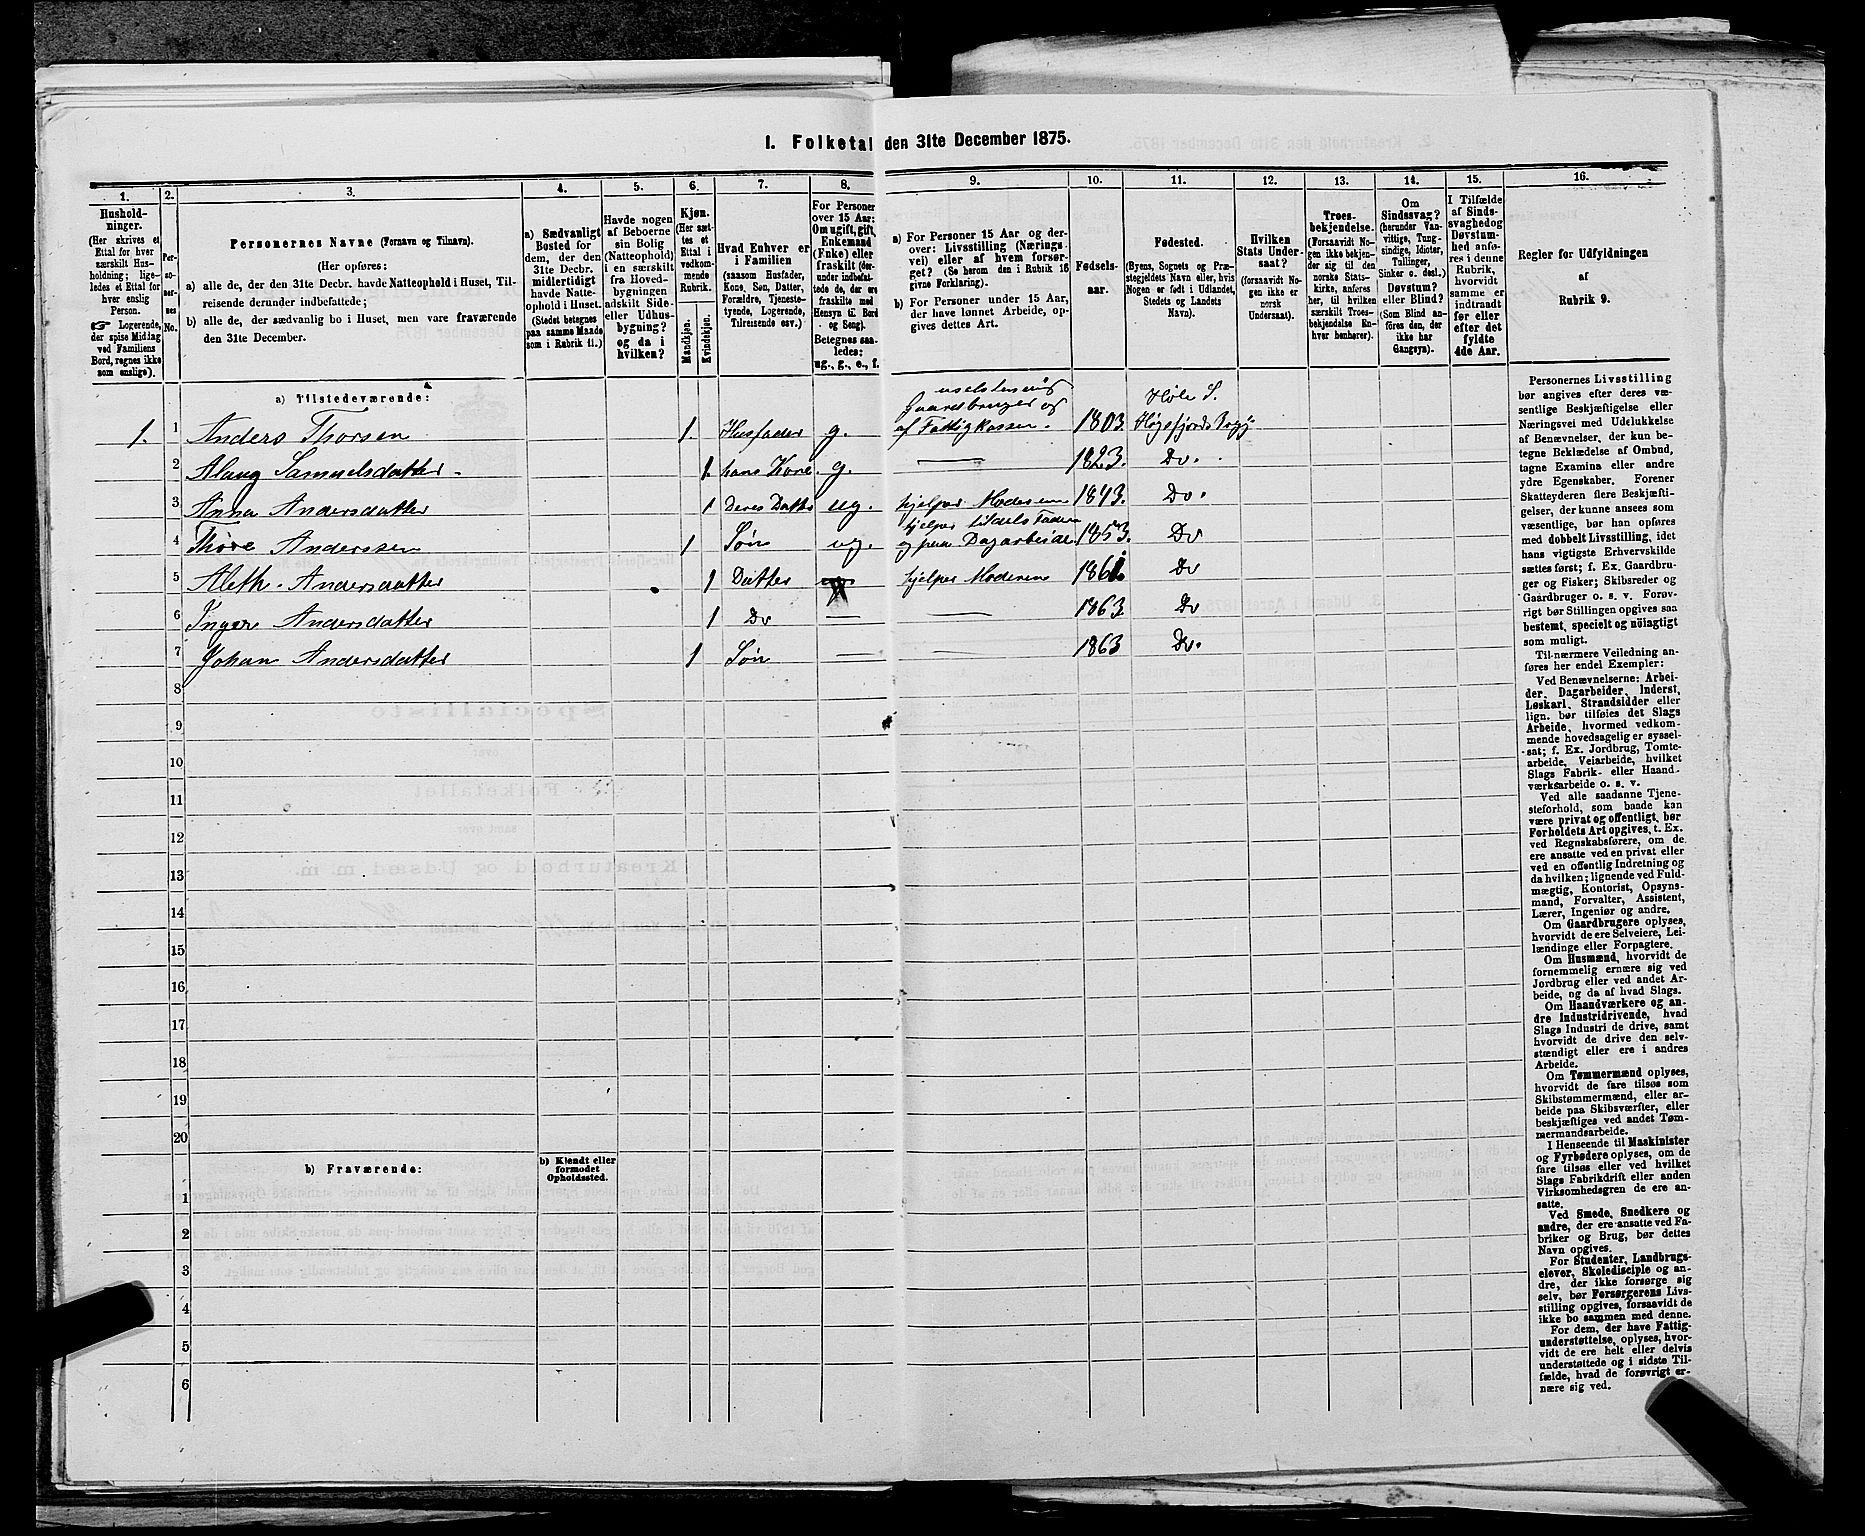 1. Folketal den 31te December 1875.
1. 2. 3. 4. 5. 6. 7. 8. 9. 10. 11. 12. 13. 14. 15. 16.
Hushold-
ninger.
(Her skrives et
Ettal for hver
særskilt Hus-
holdning; lige-
ledes et Ettal for
hver enslig
Person.
☞ Logerende,
der spise Middag
ved Familiens
Bord, regnes ikke
som enslige).
Per-
so-
ner-
nes
No.
Personernes Navne (Fornavn og Tilnavn).
(Her opføres:
a) alle de, der den 31te Decbr. havde Natteophold i Huset, Til-
reisende derunder indbefattede;
b) alle de, der sædvanlig bo i Huset, men vare fraværende
den 31te December.
a) Sædvanligt
Bosted for
dem, der den
31te Decbr.
midlertidigt
havde Natte-
ophold i Huset.
(Stedet betegnes
paa samme Maade
som i Rubrik 11.)
Havde nogen
af Beboerne
sin Bolig
(Natteophold)
i en særskilt
fra Hoved-
bygningen
adskilt Side-
eller Udhus-
bygning?
og da i
hvilken?
Kjøn.
(Her sæt-
tes et
Ettal i
vedkom-
mende
Rubrik.
Mandkjøn.
Kvindekjøn.
Hvad Enhver er
i Familien
(saasom Husfader,
Kone, Søn, Datter,
Forældre, Tjeneste-
tyende, Logerende,
Tilreisende osv.)
For Personer
over 15 Aar:
Om ugift, gift,
Enkemand
(Enke) eller
fraskilt (der-
under indbefat-
tede de, der ere
fraskilte med
Hensyn til Bord
og Seng).
Betegnes saa-
ledes:
ug., g., e., f.
a) For Personer 15 Aar og der-
over: Livsstilling (Nærings-
vei) eller af hvem forsør-
get? (Se herom den i Rubrik 16
givne Forklaring).
b) For Personer under 15 Aar,
der have lønnet Arbeide, op-
gives dettes Art.
Fødsels-
aar.
Fødested.
(Byens, Sognets og Præ-
stegjeldets Navn eller, hvis
Nogen er født i Udlandet,
Stedets og Landets
Navn).
Hvilken
Stats Under-
saat?
(forsaavidt No-
gen ikke er
norsk
Undersaat).
Troes-
bekjendelse.
(Forsaavidt No-
gen ikke bekjen-
der sig til den
norske Stats-
kirke, anføres
her, til hvilken
særskilt Troes-
bekjendelse En-
hver henhører).
Om
Sindssvag?
(herunder Van-
vittige, Tung-
sindige, Idioter,
Tullinger,
Sinker o. desl.)
Døvstum?
eller Blind?
(Som Blind an-
føres den, der
ikke har
Gangsyn).
I Tilfælde
af Sinds-
svaghedog
Døvstum-
hed anfø-
res i denne
Rubrik,
hvorvidt
samme er
indtraadt
før eller
efter det
fyldte
4de Aar.
Regler for Udfyldningen
af
Rubrik 9.
a) Tilstedeværende:
1. 1 Anders Thorsen 1. Husfader g. uselstændig Gaardbruger og af Fattigkassen. 1803. Høle S. Høgsfjords Prgj
2 Alaug Samuelsdatter 1. hans Kone. g. — 1823. Do.
3 Anna Andersdatter 1 Deres Datter ug. hjelper Moderen 1843. Do.
4 Thore Anderssen 1 Søn ug. hjelper tildels Faderen og paa Dagarbeide 1853. Do
5 Aleth. Andersdatter 1 Datter hjelper Moderen 1861. Do
6 Inger Andersdatter 1 Do — — 1863. Do
7 Johan Andersdatter 1 Søn — 1863 Do.
8
9
10
11
12
13
14
15
16
17
18
19
20
b) Fraværende:
b) Kjendt eller
formodet
Opholdssted.
1
2
3
4
5
6
Personernes Livsstilling
bør angives efter deres væ-
sentlige Beskjæftigelse eller
Næringsvei med Udelukkelse
af Benævnelser, der kun be-
tegne Beklædelse af Ombud,
tagne Examina eller andre
ydre Egenskaber. Forener
Skatteyderen flere Beskjæfti-
gelser, der kunne ansees som
væsentlige, bør han opføres
med dobbelt Livsstilling, idet
hans vigtigste Erhvervskilde
sættes først; f. Ex. Gaardbru-
ger og Fisker; Skibsreder og
Gaardbruger o. s. v. Forøv-
rigt bør Stillingen opgives saa
bestemt, specielt og nöiagtigt
som muligt.
Til nærmere Veiledning an-
føres her endel Exempler:
Ved Benævnelserne: Arbei-
der, Dagarbeider, Inderst,
Løskarl, Strandsidder eller
lign. bør tilføies det Slags
Arbeide, hvormed vedkom-
mende hovedsagelig er syssel-
sat; f. Ex. Jordbrug, Tomte-
arbeide, Veiarbeide, hvilket
Slags Fabrik- eller Haand-
værksarbeide o. s. v.
Ved alle saadanne Tjene-
steforhold, som baade kan
være privat og offentligt, bør
Forholdets Art opgives, t. Ex.
ved Regnskabsførere, om de
ere ansatte ved en privat eller
ved en offentlig Indretning og
da hvilken; lignende ved Fuld-
mægtig, Kontorist, Opsyns-
mand, Forvalter, Assistent,
Lærer, Ingeniør og andre.
Om Gaardbrugere oplyses,
hvorvidt de ere Selveiere, Lei-
lændinge eller Forpagtere.
Om Husmænd, hvorvidt de
fornemmelig ernære sig ved
Jordbrug eller ved andet Ar-
beide, og da af hvad Slags.
Om Haandværkere og an-
dre Industridrivende, hvad
Slags Industri de drive, samt
hvorvidt de drive den selv-
stændigt eller ere i andres
Arbeide.
Om Tømmermænd oplyses,
hvorvidt de fare tilsøs som
Skibstømmermænd, eller ar-
beide paa Skibsværfter, eller
beskjæftiges ved andet Tøm-
mermandsarbeide.
I Henseende til Maskinister
og Fyrbødere oplyses, om de
fare tilsøs eller ved hvilket
Slags Fabrikdrift eller anden
Virksomhedsgren de ere an-
satte.
Ved Smede, Snedkere og
andre, der ere ansatte ved Fa-
briker og Brug, bør dettes
Navn opgives.
For Studenter, Landbrugs-
elever, Skoledisciple og an-
dre, der ikke forsørge sig
selv, bør Forsørgerens Livs-
stilling opgives, forsaavidt de
ikke bo sammen med denne.
For dem, der have Fattig-
understøttelse, oplyses, hvor-
vidt de ere helt eller delvis
understøttede og i sidste Til-
fælde, hvad de forøvrigt er-
nære sig ved.